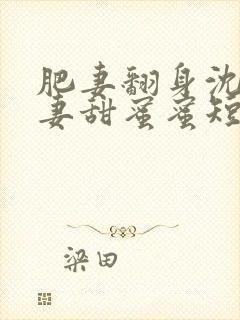 肥妻翻身沈
妻甜蜜蜜短
梁田